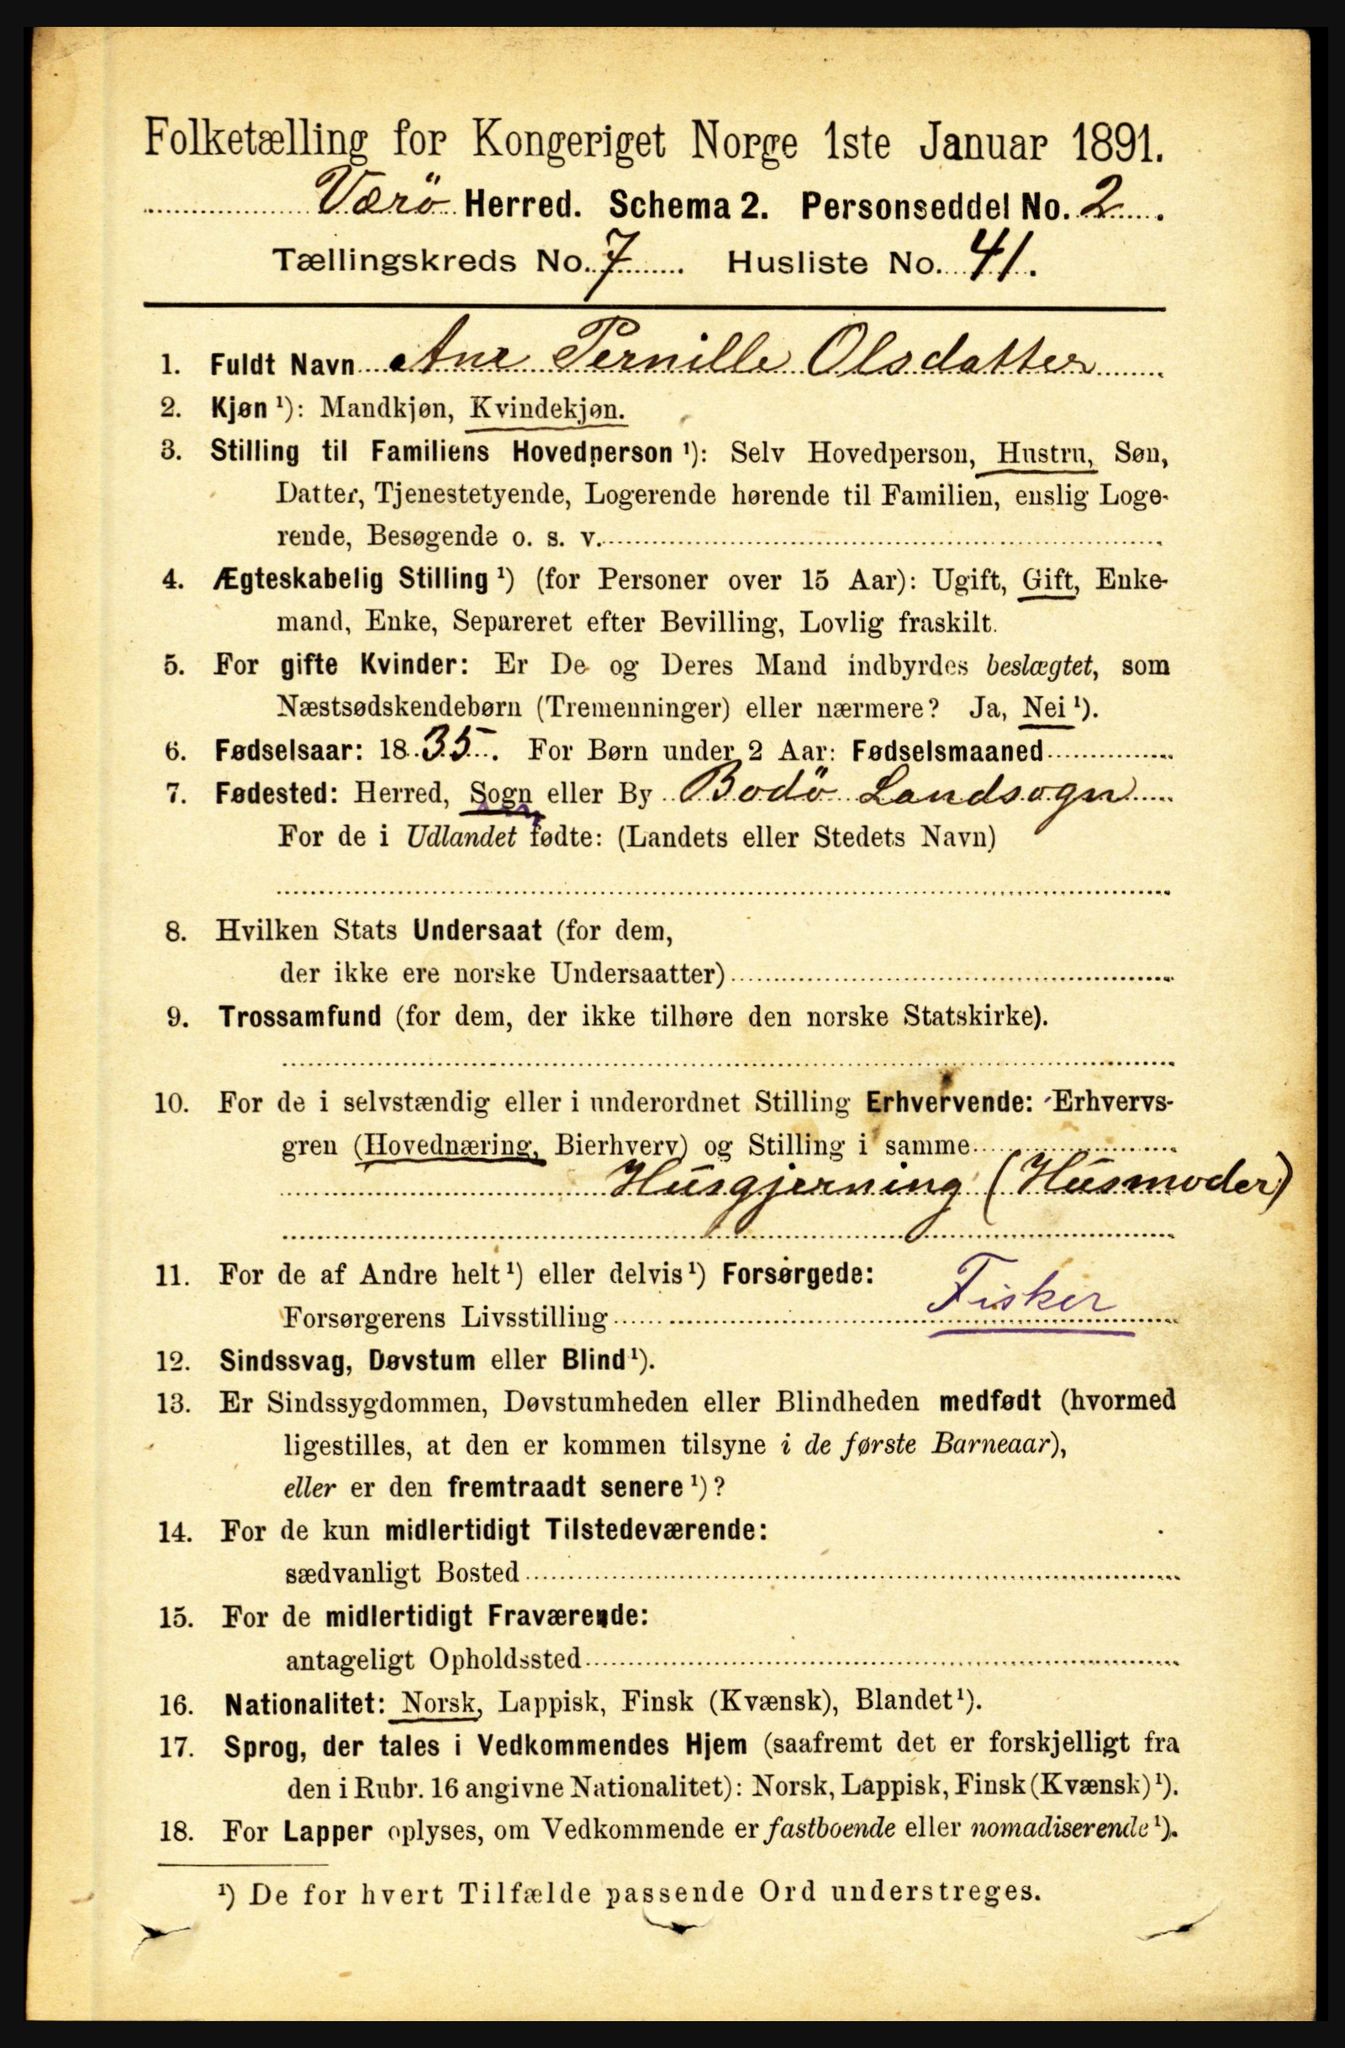 Folketælling for Kongeriget Norge 1ste Januar 1891.
Værö Herred. Schema 2. Personseddel No. 2.
Tællingskreds No. 7 Husliste No. 41.
1. Fuldt Navn Ane Pernille Olsdatter
2. Kjøn ¹): Mandkjøn, Kvindekjøn.
3. Stilling til Familiens Hovedperson ¹): Selv Hovedperson, Hustru, Søn,
Datter, Tjenestetyende, Logerende hørende til Familien, enslig Loge-
rende, Besøgende o. s. v.
4. Ægteskabelig Stilling ¹) (for Personer over 15 Aar): Ugift, Gift, Enke-
mand, Enke, Separeret efter Bevilling, Lovlig fraskilt.
5. For gifte Kvinder: Er De og Deres Mand indbyrdes beslægtet, som
Næstsødskendebørn (Tremenninger) eller nærmere? Ja, Nei ¹).
6. Fødselsaar: 1835. For Børn under 2 Aar: Fødselsmaaned
7. Fødested: Herred, Sogn eller By Bodö Landsogn
For de i Udlandet fødte: (Landets eller Stedets Navn)
8. Hvilken Stats Undersaat (for dem,
der ikke ere norske Undersaatter)
9. Trossamfund (for dem, der ikke tilhøre den norske Statskirke).
10. For de i selvstændig eller i underordnet Stilling Erhvervende: Erhvervs-
gren (Hovednæring, Bierhverv) og Stilling i samme
Husgjerning (Husmoder)
11. For de af Andre helt ¹) eller delvis ¹) Forsørgede:
Forsørgerens Livsstilling Fisker
12. Sindssvag, Døvstum eller Blind ¹).
13. Er Sindssygdommen, Døvstumheden eller Blindheden medfødt (hvormed
ligestilles, at den er kommen tilsyne i de første Barneaar),
eller er den fremtraadt senere ¹)?
14. For de kun midlertidigt Tilstedeværende:
sædvanligt Bosted
15. For de midlertidigt Fraværende:
antageligt Opholdssted
16. Nationalitet: Norsk, Lappisk, Finsk (Kvænsk), Blandet ¹).
17. Sprog, der tales i Vedkommendes Hjem (saafremt det er forskjelligt fra
den i Rubr. 16 angivne Nationalitet): Norsk, Lappisk, Finsk (Kvænsk) ¹).
18. For Lapper oplyses, om Vedkommende er fastboende eller nomadiserende ¹).
¹) De for hvert Tilfælde passende Ord understreges.